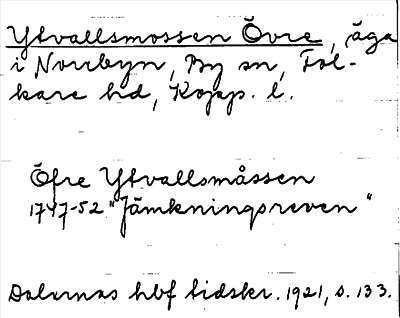 Ytvallsmossen Övre, äga
i Norrbyn, By sn, Fol-
kare hd, Kopp. l.
Öfre Ytvallsmåssen
1747-52 "Jämkningsreven"
Dalarnas hbf tidskr. 1921, s. 133.